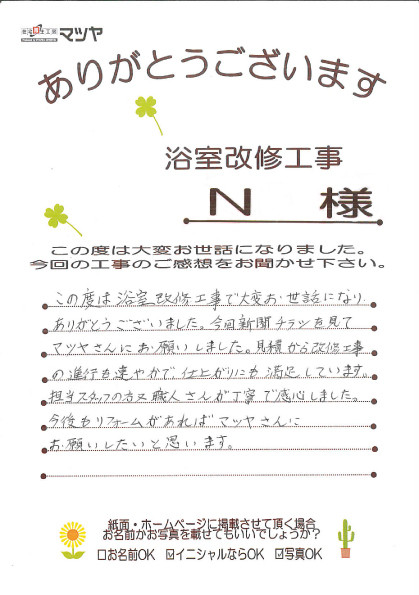 マツヤ
ありがとうございます
浴室改修工事
N 様
この度は大変お世話になりました。
今回の工事のご感想をお聞かせ下さい。
この度は浴室改修工事で大変お世話になり
ありがとうございました。今回新聞チラシを見て
マツヤさんにお願いしました。見積から改修工事
の進行も速やかで、仕上がりにも満足しています。
担当スタッフの方又職人さんが丁寧で感心しました。
今後もリフォームがあればマツヤさんに
お願いしたいと思います。
紙面・ホームページに掲載させて頂く場合
お名前かお写真を載せてもいいでしょうか？
□お名前OK ☑イニシャルならOK ☑写真OK